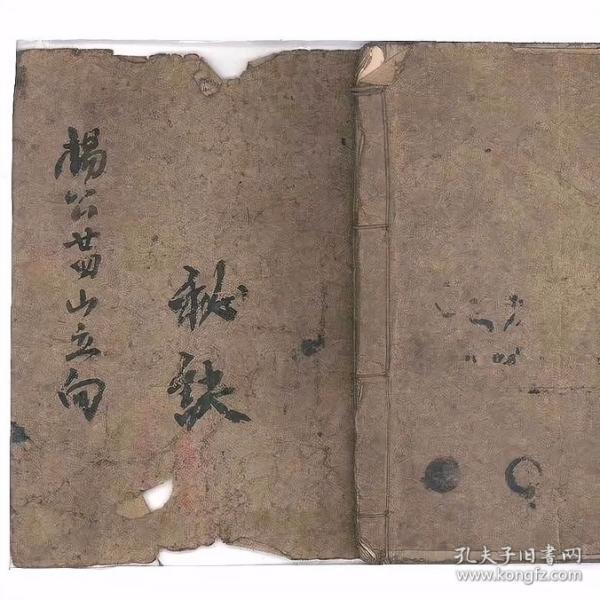 楊公廿四山立向
秘訣
孔夫子旧书网
www.kongfz.com